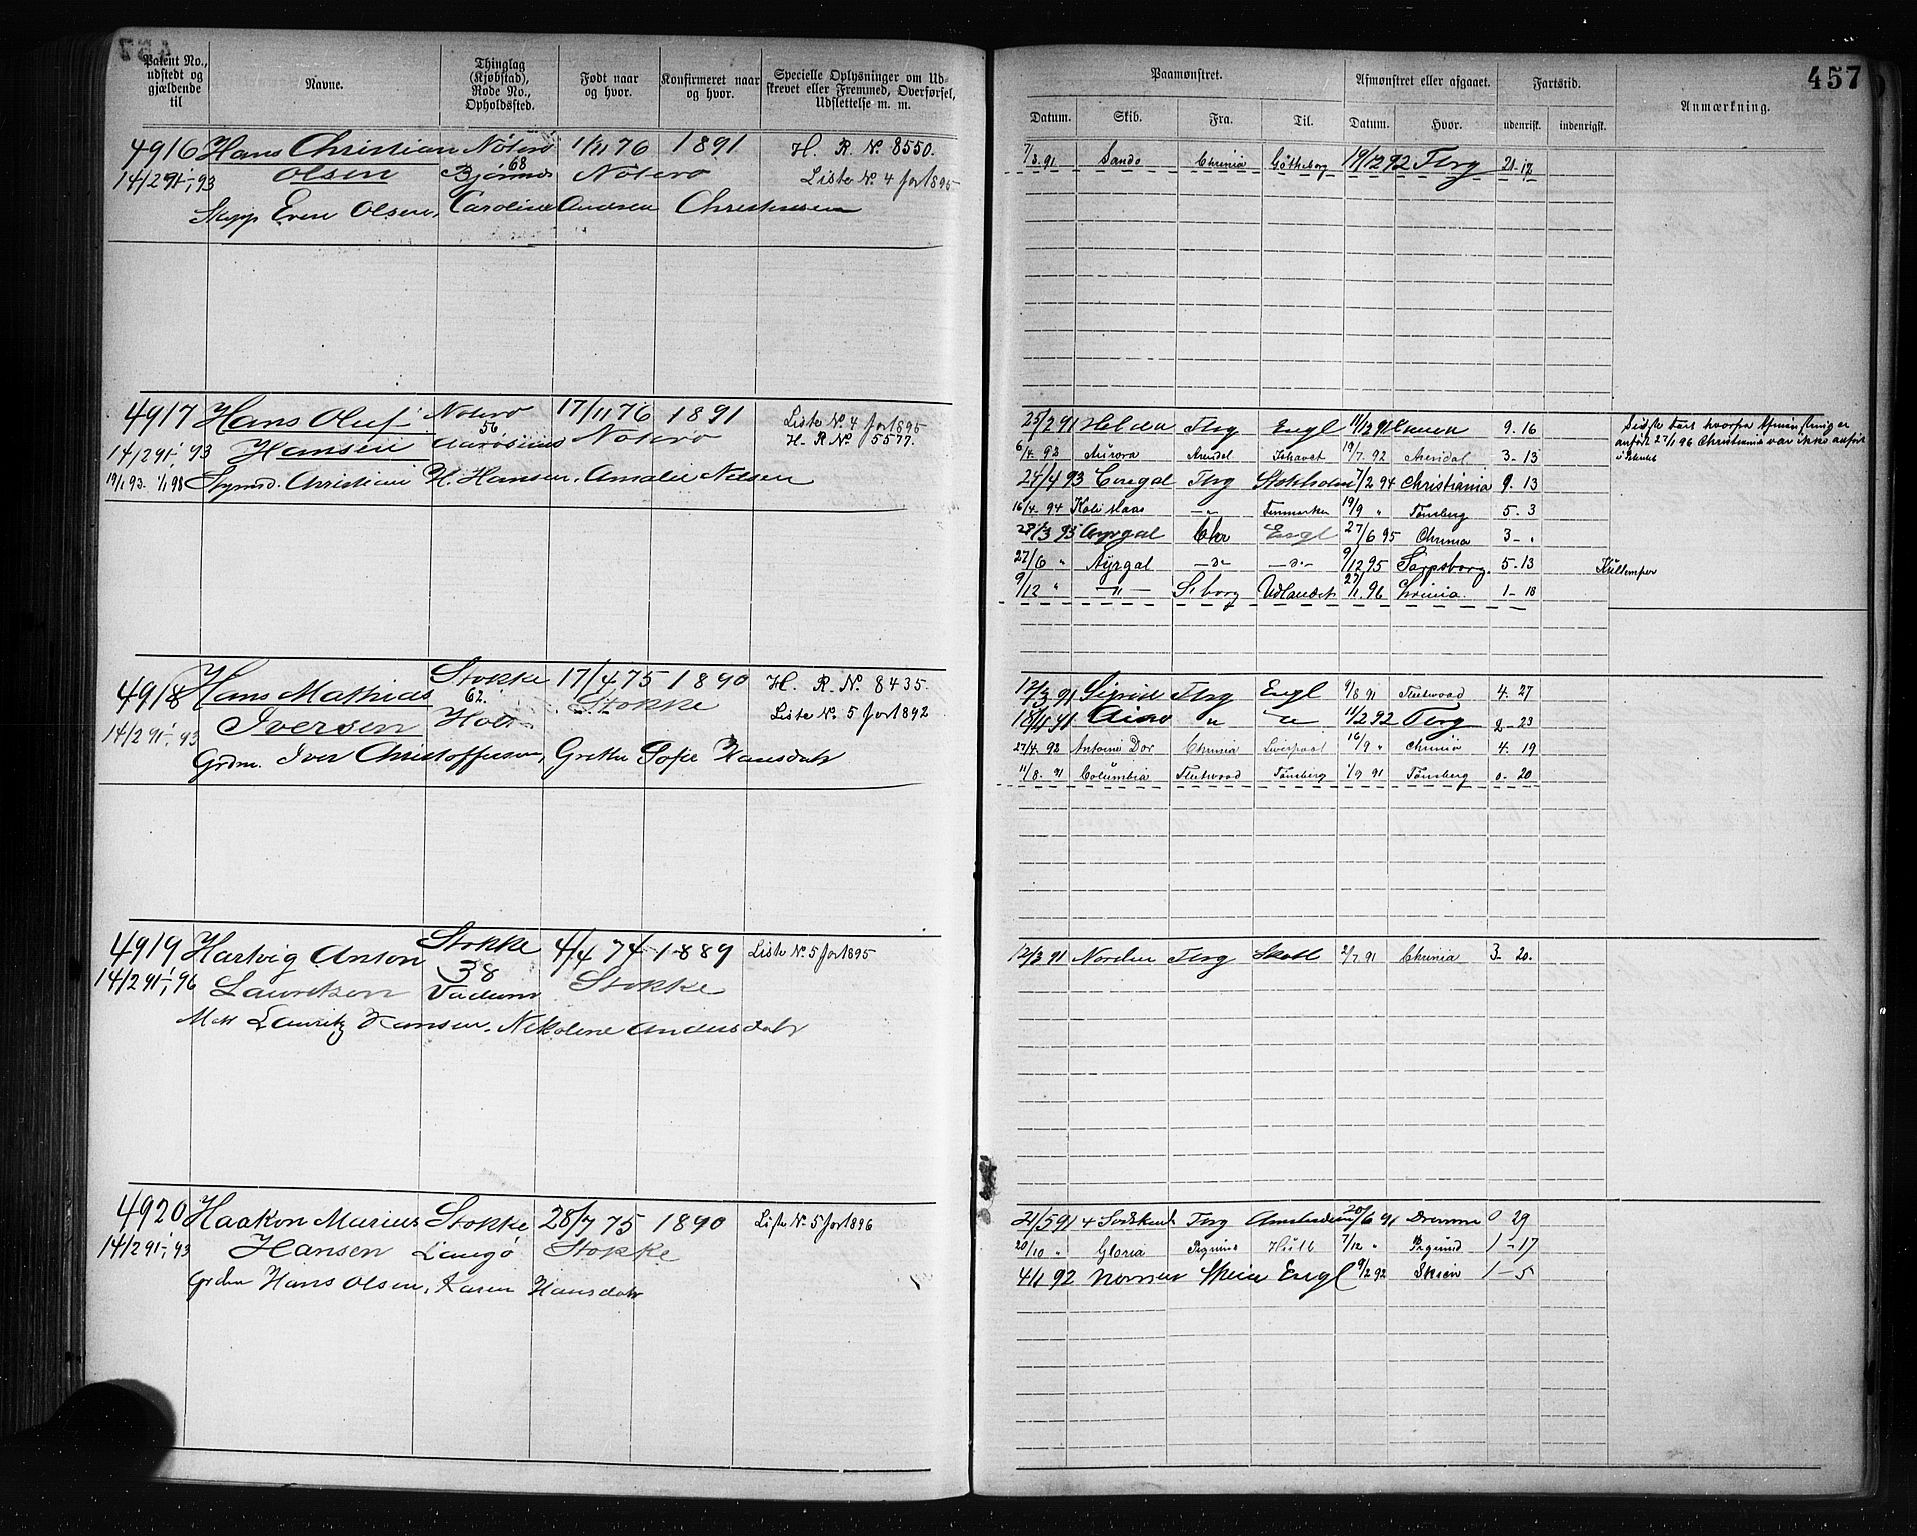 457
Patent No., udstedt og gjældende til
Navne.
Thinglag (Kjøbstad), Rode No., Opholdssted.
Født naar og hvor.
Konfirmeret naar og hvor.
Specielle Oplysninger om Udskrevet eller Fremmed, Overførsel, Udslettelse m. m.
Paamønstret.
Afmønstret eller afgaaet.
Fartstid.
Anmærkning.
Datum. Skib. Fra. Til. Datum. Hvor. udenrigst. indenrigst.
4916 Hans Christian Nøterø 1/11 76 1891 H. R. No. 8550.
14/2 91-1/1 93 Olsen 68 Bjørnnes Nøterø Liste No. 4 for 1895
Skipp Even Olsen, Caroline Andrea Christensen
7/3. 91 Sando Chrinia Götheborg 19/12 92 Tbrg 21-12
4917 Hans Oluf Nøterø 17/11 76 1891 Liste No. 4 for 1895
14/2 91-1/1 93 Hansen 56 Aarøsund Nøterø H. R. No. 5577.
19/1 93-1/1 98 Christian H. Hansen, Amalie Nilsen
25/2 91 Helden Tbrg Engl 11/12 91 9. 16
6/4. 92 Aurora Arendal Ishavet 19/7. 92 Arendal 3-13
24/4 93 Tbrg Stokholm 7/2 94 Christiania 9. 13
16/4-94 -„- Finmarken 19/9 „ Tønsberg 5-3
28/3 95 Chr Engl 27/6 95 Chrinia 3-.
27/6 „ Ayrgal -„- -„- 9/12 95 Sarpsborg. 5-13
9/12 „ -„- S. borg Udlandet 27/1. 96 Chrinia. 1-18
4918 Hans Mathias Stokke 17/4 75 1890 H. R. No. 8435.
14/2 91-1/1 93 Iversen 62. Holt Stokke Liste No. 5 for 1892
Grdm. Iver Christoffersen, Grethe Sofie Hansdatr
12/3 91 Sigrid Tbrg Engl 9/8 91 Fleetwood 4. 27
18/11 91 Aino „ „ 11/2 92 Tbrg 2-23
27/4. 92 Antoine Dor Chrinia Liverpool 16/9 „ Chrinia 4. 19
11/8. 91 Columbia Fleetwood Tønsberg 1/9 91 Tønsberg 0-20
4919 Hartvig Anton Stokke 4/4 74 1889 Liste No. 5 for 1895
14/2 91-1/1 96 Lauritzen 38 Stokke
Matr Lauritz Hansen, Nikoline Andersdatr
12/3 91 Norden Tbrg Skotl 2/7. 91 Chrinia 3-20.
4920 Haakon Marius Stokke 28/7 75 1890 Liste No. 5 for 1896
14/2 91-1/1 93 Hansen Langø Stokke
Grdm Hans Olsen, Karen Hansdatr
21/5 91 4 Sødskende Tbrg Amsterdam 20/6 91 Dramm 0 29
20/10 „ Gloria Hull 7/12 „ 1-17
4/1 92 Skien Engl 9/2 92 Skien 1-5